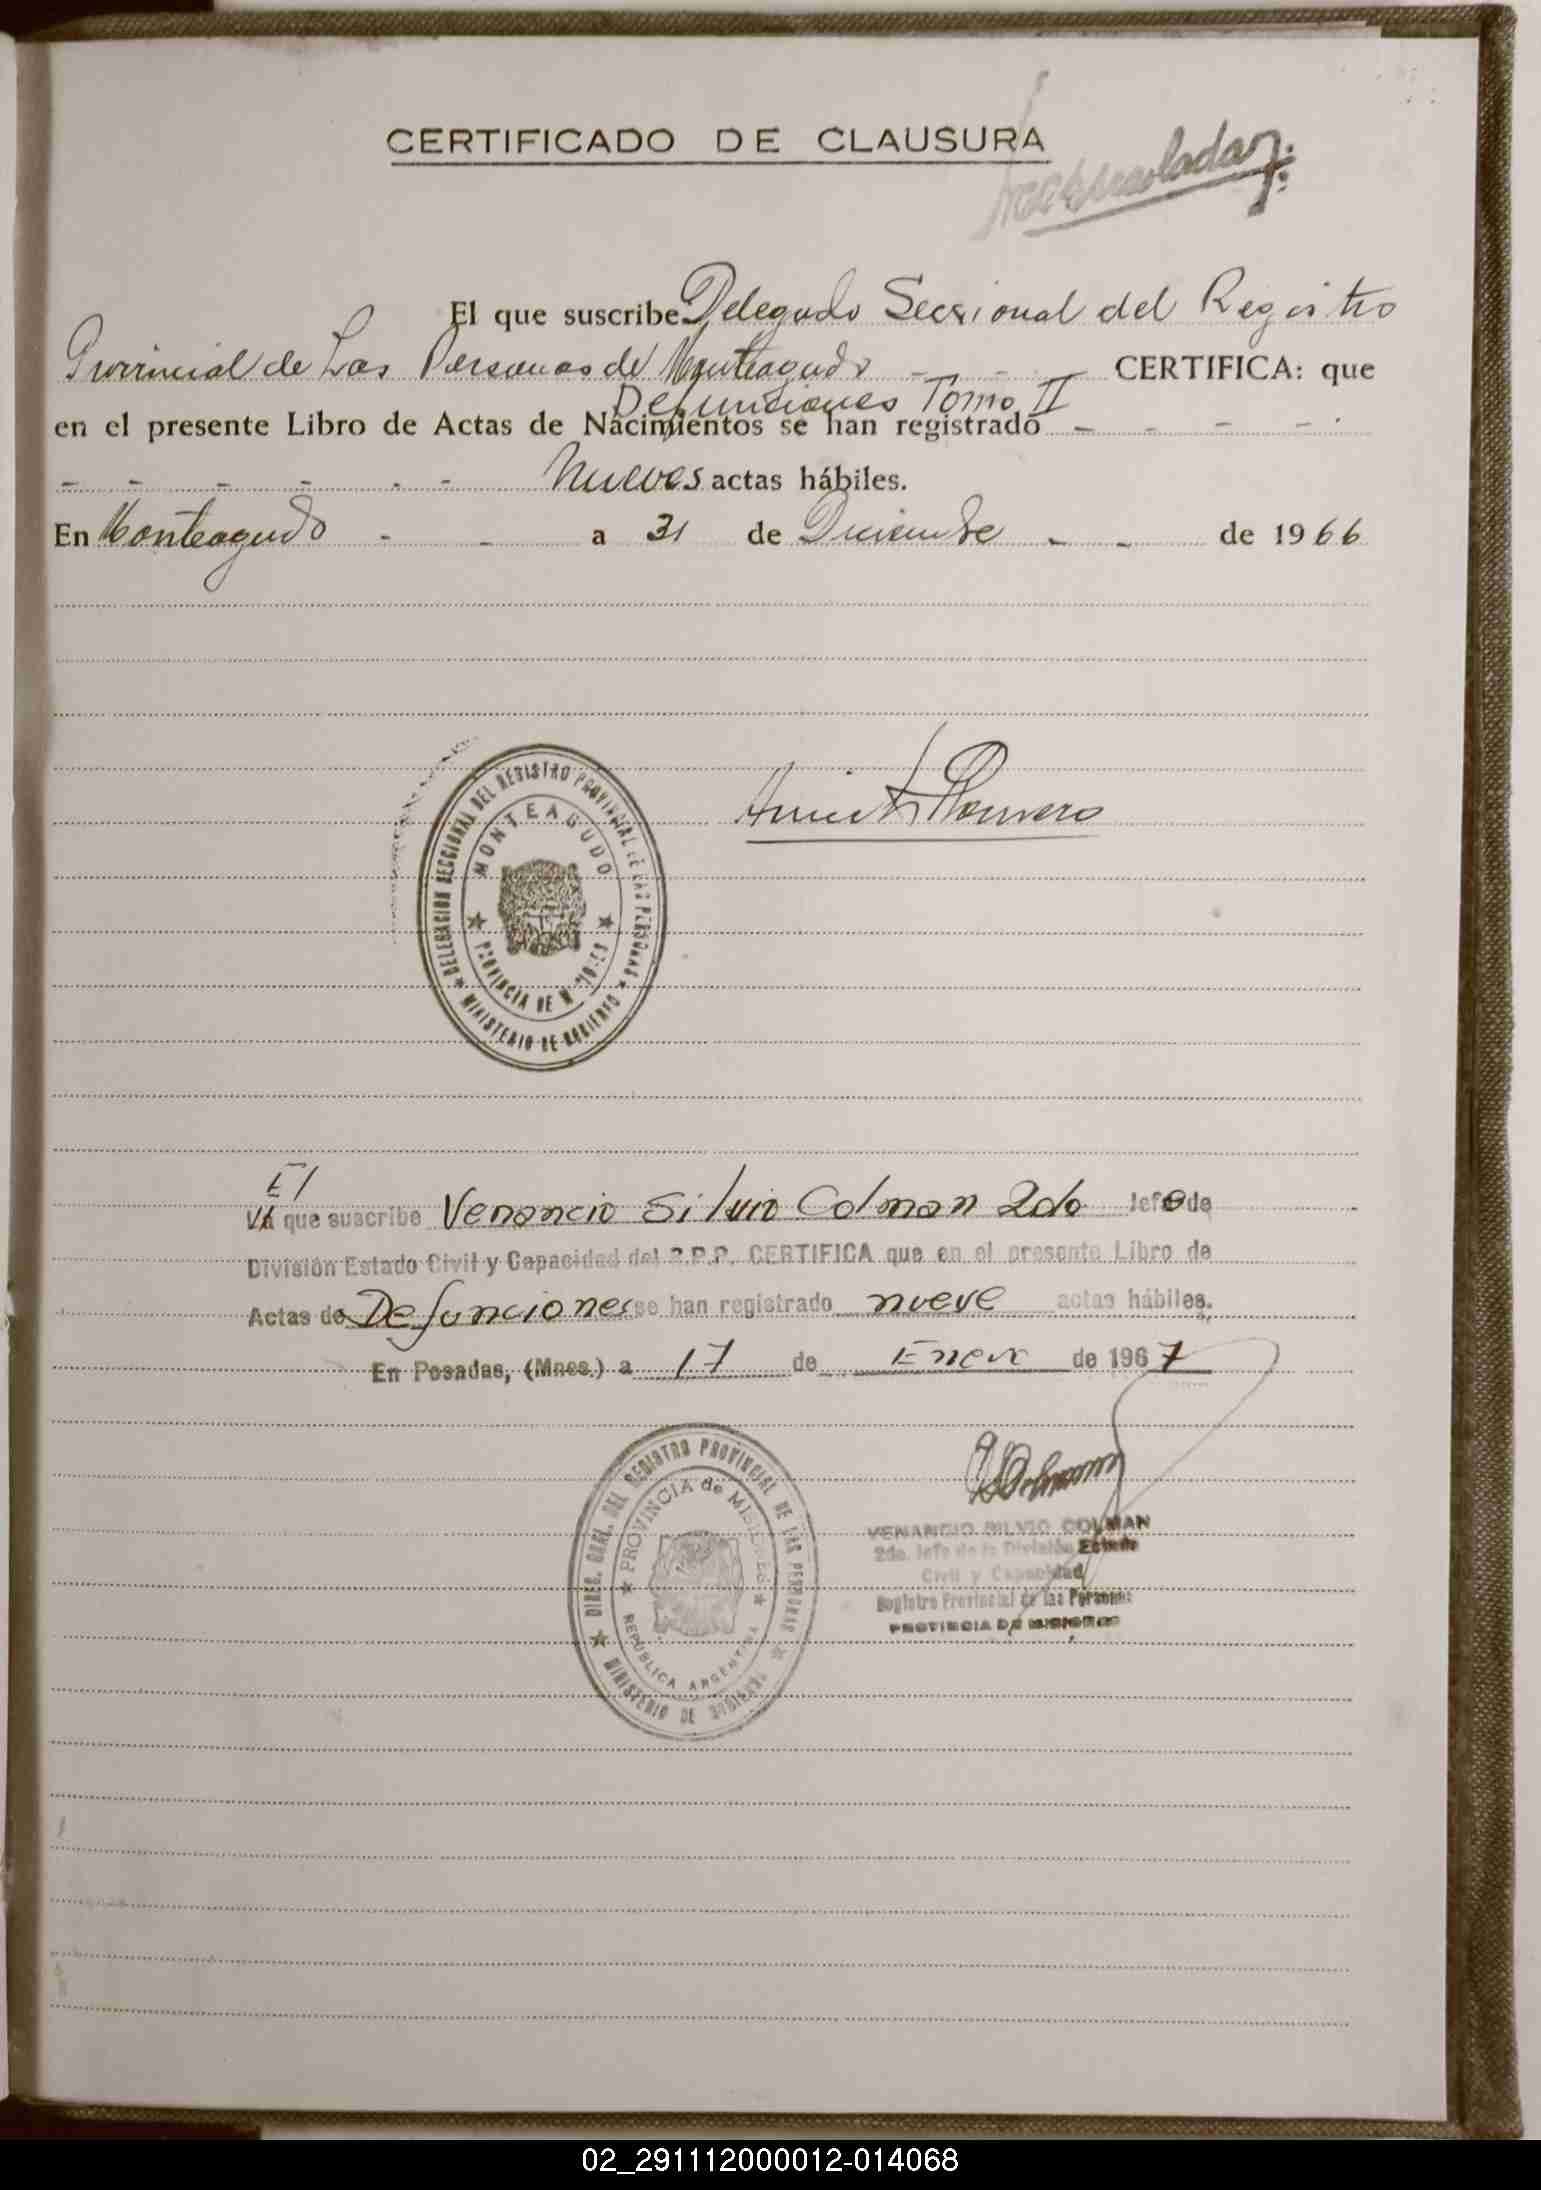 CERTIFICADO DE CLAUSURA
El que suscribe Delegado Seccional del Registro
Provincial de Las Personas de Monteagudo - - - CERTIFICA: que
Defunciones Tomo II
en el presente Libro de Actas de Nacimientos se han registrado - - - -
- - - - - - Nueves actas hábiles.
En Monteagudo - - a 31 de Diciembre - - de 1966
DELEGACION SECCIONAL DEL REGISTRO PROVINCIAL DE LAS PERSONAS
MONTEAGUDO
PROVINCIA DE MISIONES
MINISTERIO DE GOBIERNO
Romero
El
La que suscribe Venancio Silvio Colman 2do Jefe de
División Estado Civil y Capacidad del R.P.P. CERTIFICA que en el presente Libro de
Actas de Defunciones se han registrado nueve actas hábiles.
En Posadas, (Mnes.) a 17 de Enero de 1967
DIREC. GRAL. DEL REGISTRO PROVINCIAL DE LAS PERSONAS
PROVINCIA de MISIONES
REPÚBLICA ARGENTINA
MINISTERIO DE GOBIERNO
VSColman
VENANCIO SILVIO COLMAN
2do. Jefe de la División Estado
Civil y Capacidad
Registro Provincial de las Personas
PROVINCIA DE MISIONES
02_291112000012-014068